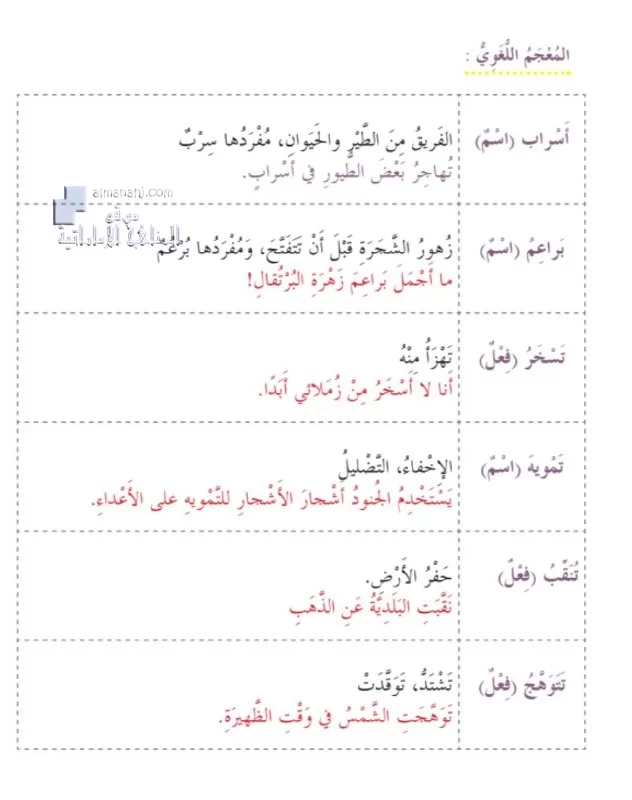 المُعْجَمُ اللُّغَوِيُّ :
أَسْراب (اسْمٌ)
الفَريقُ مِنَ الطَّيْرِ والحَيوانِ، مُفْرَدُها سِرْبٌ
تُهاجِرُ بَعْضَ الطُّيورِ في أَسْرابٍ.
almanahj.com
موقع
المناهج الإماراتية
بَراعِمُ (اسْمٌ)
زُهورُ الشَّجَرَةِ قَبْلَ أَنْ تَتَفَتَّحَ، وَمُفْرَدُها بُرْعُمٌ
ما أَجْمَلَ بَراعِمَ زَهْرَةِ البُرْتُقالِ!
تَسْخَرُ (فِعْلٌ)
تَهْزَأُ مِنْهُ
أَنا لا أَسْخَرُ مِنْ زُمَلائي أَبَدًا.
تَمْويهَ (اسْمٌ)
الإِخْفاءُ، التَّضْليلُ
يَسْتَخْدِمُ الجُنودُ أَشْجارَ الأَشْجارِ للتَّمْويهِ على الأَعْداءِ.
تُنَقِّبُ (فِعْلٌ)
حَفْرُ الأَرْضِ.
نَقَّبَتِ البَلَدِيَّةُ عَنِ الذَّهَبِ
تَتَوَهَّجُ (فِعْلٌ)
تَشْتَدُّ، تَوَقَّدَتْ
تَوَهَّجَتِ الشَّمْسُ في وَقْتِ الظَّهيرَةِ.